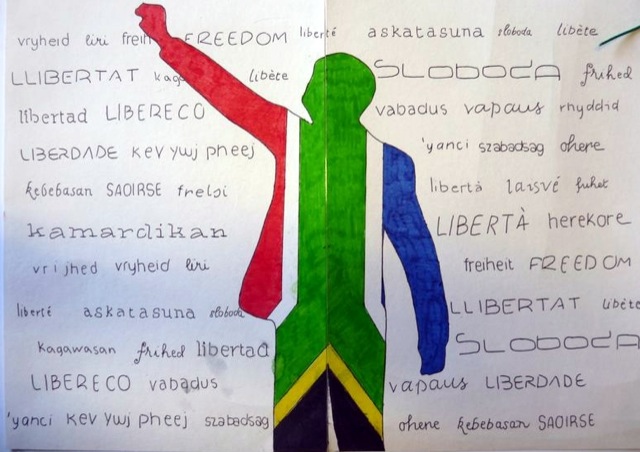 vryheid liri freih FREEDOM liberté askatasuna sloboda libète
LLIBERTAT kaga libète SLOBODA frihed
libertad LIBERECO vabadus vapaus rhyddid
LIBERDADE kev ywj pheej 'yanci szabadsag ohere
kebebasan SAOIRSE frelsi libertà laisvé
kamardikan LIBERTÀ herekore
vrijhed vryheid liri freiheit FREEDOM
liberté askatasuna sloboda LLIBERTAT libète
kagawasan frihed libertad SLOBODA
LIBERECO vabadus vapaus LIBERDADE
'yanci kev ywj pheej szabadsag ohene kebebasan SAOIRSE